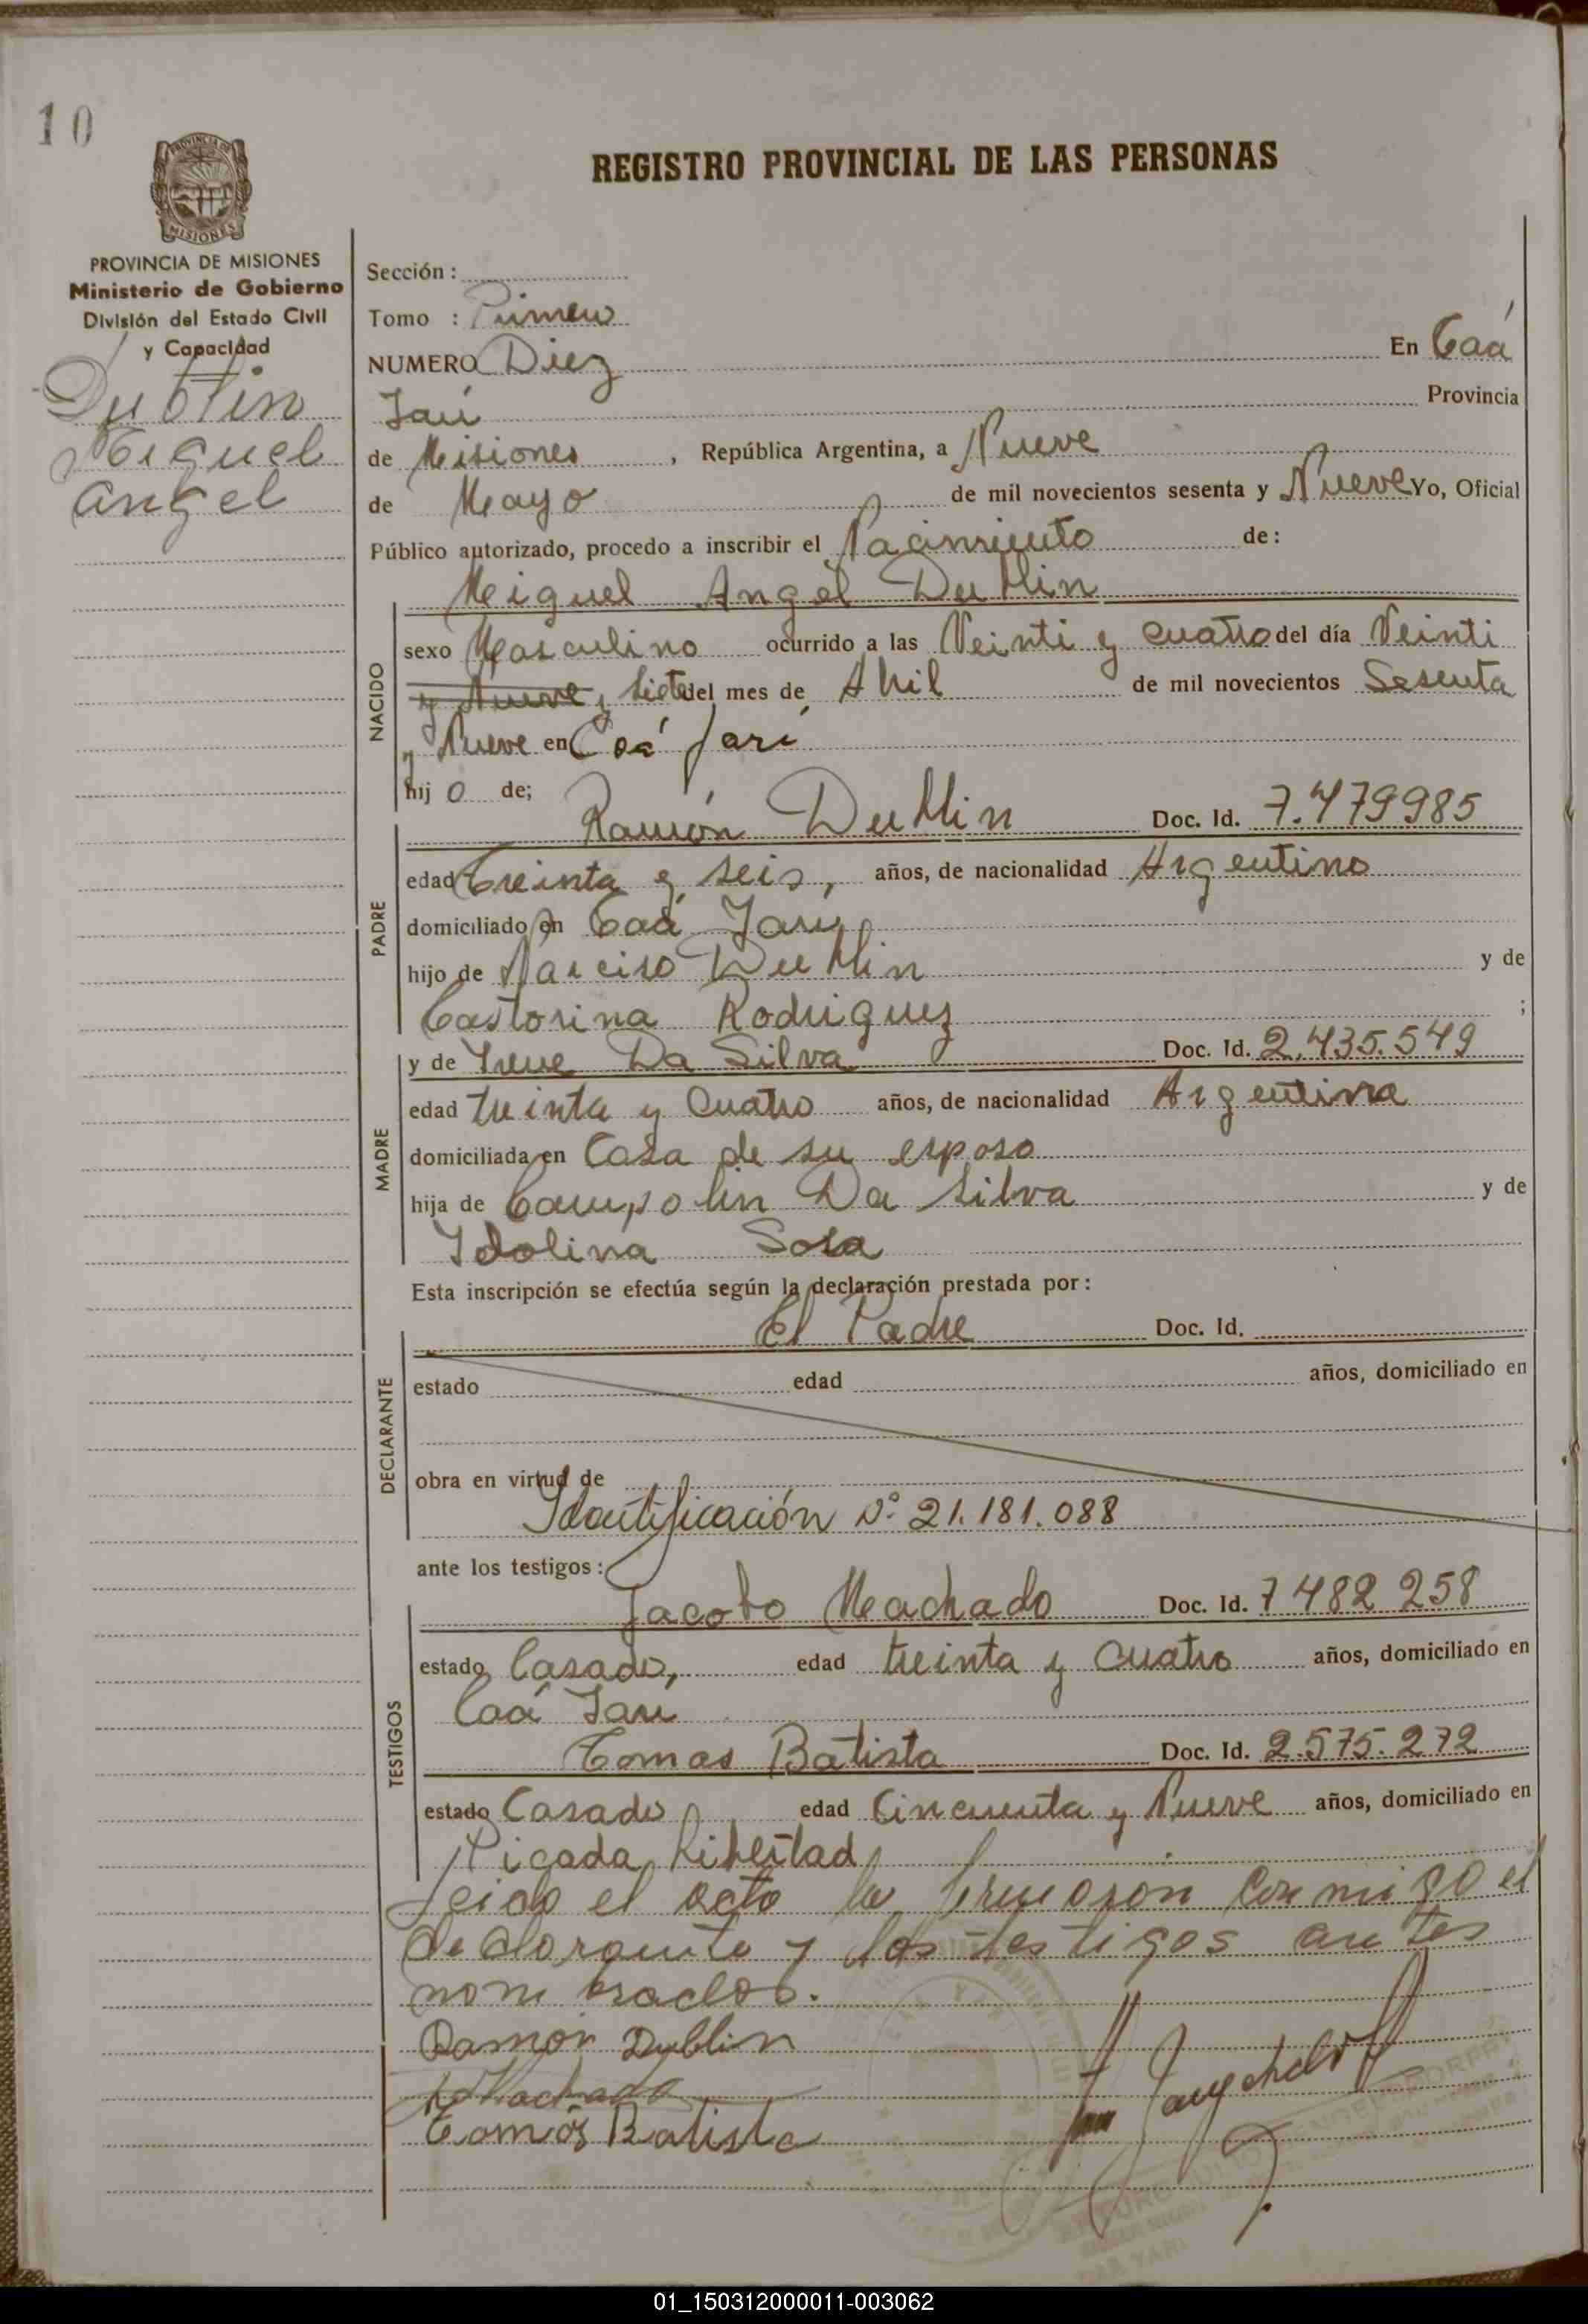 10
PROVINCIA DE
MISIONES
REGISTRO PROVINCIAL DE LAS PERSONAS
PROVINCIA DE MISIONES
Ministerio de Gobierno
División del Estado Civil
y Capacidad
Dublin
Miguel
Angel
Sección :
Tomo : Primero
NUMERO Diez En Caá
Yarí Provincia
de Misiones , República Argentina, a Nueve
de Mayo de mil novecientos sesenta y Nueve Yo, Oficial
Público autorizado, procedo a inscribir el Nacimiento de:
Miguel Angel Dublin
NACIDO
sexo Masculino ocurrido a las Veinti y cuatro del día Veinti
y Nueve y Siete del mes de Abril de mil novecientos Sesenta
y Nueve en Caá Yarí
hij o de;
PADRE
Ramón Dublin Doc. Id. 7.479985
edad Treinta y seis, años, de nacionalidad Argentino
domiciliado en Caá Yarí
hijo de Narciso Dublin y de
Castorina Rodriguez ;
MADRE
y de Irene Da Silva Doc. Id. 2.435.549
edad treinta y cuatro años, de nacionalidad Argentina
domiciliada en Casa de su esposo
hija de Campolin Da Silva y de
Idolina Sosa
Esta inscripción se efectúa según la declaración prestada por:
DECLARANTE
El Padre Doc. Id.
estado edad años, domiciliado en
obra en virtud de
Identificación Nº 21.181.088
ante los testigos:
TESTIGOS
Jacobo Machado Doc. Id. 7 482 258
estado Casado, edad treinta y cuatro años, domiciliado en
Caá Yari
Tomas Batista Doc. Id. 2.575.272
estado Casado edad Cincuenta y Nueve años, domiciliado en
Picada Libertad
Leido el acto la firmaron conmigo el
declarante y los testigos antes
nombrados.
Ramon Dublin
Machado
Tomás Batista
01_150312000011-003062